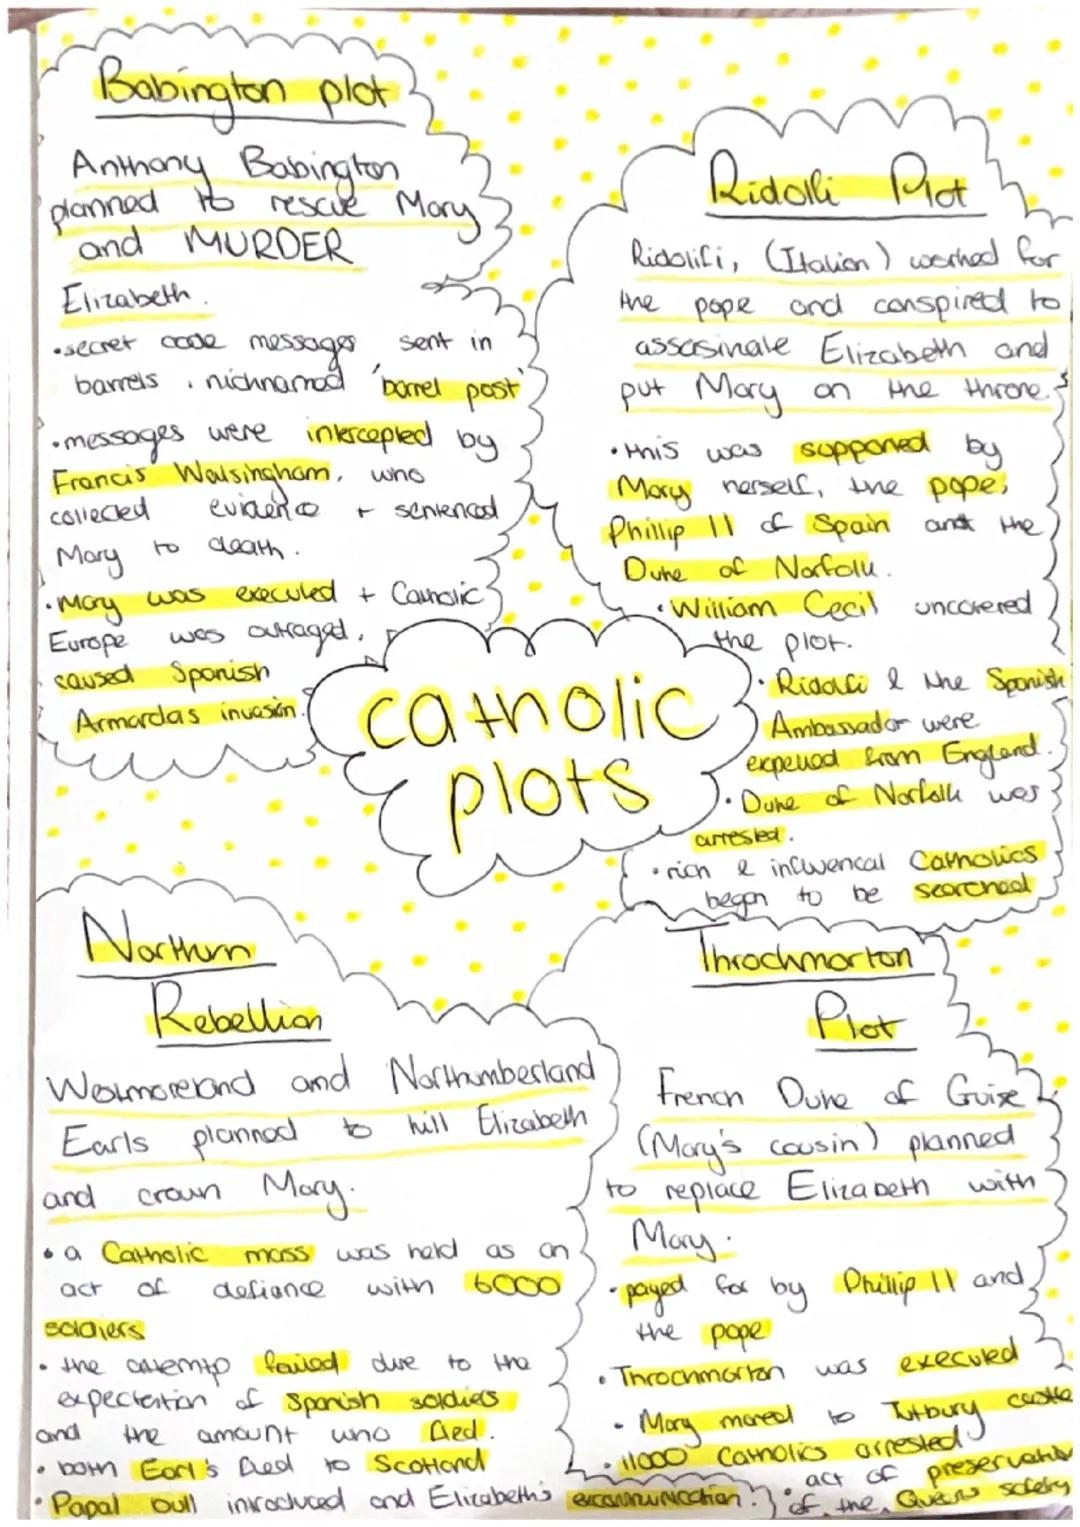 Babington plot
Anthony Babington
planned to rescue Mary
and MURDER
Elizabeth.
•secret code messages sent in
barrels, nicknamed 'barrel post'
•messages were intercepted by
Francis Walsingham, who
collected evidence + sentenced
Mary to death.
•Mary was executed + Catholic
Europe was outraged.
caused Spanish
Armardas invasion.
Ridolfi Plot
Ridolifi, (Italian) worked for
the pope and conspired to
assasinate Elizabeth and
put Mary on the throne.
•this was supported by
Mary herself, the pope,
Phillip II of Spain and the
Duke of Norfolk.
•William Cecil uncovered
the plot.
•Ridolfi & the Spanish
Ambassador were
expelled from England.
•Duke of Norfolk was
arrested.
•rich & influencal Catholics
began to be searched
catholic
plots
Northern
Rebellion
Westmoreland and Northumberland
Earls planned to kill Elizabeth
and crown Mary.
•a Catholic mass was held as an
act of defiance with 6000
soldiers
•the attemtp failed due to the
expectation of Spanish soldiers
and the amount who fled.
•both Earl's fled to Scotland
•Papal bull introduced and Elizabeth's excommunication.
Throckmorton
Plot
French Duke of Guise
(Mary's cousin) planned
to replace Elizabeth with
Mary.
•payed for by Phillip II and
the pope
•Throckmorton was executed
•Mary moved to Tutbury castle
•11000 Catholics arrested
•act of preservation
of the Queens safety